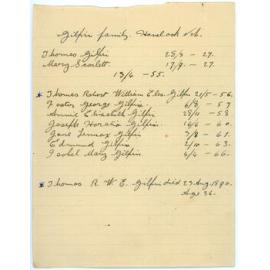 Gilpin family. Havelock Nth.
Thomas Gilpin 25/3 - 27.
Mary Scarlett 17/9. - 27.
13/6 - 55.
* Thomas Robert William Gilpin 21/5 - 56.
Foster George Gilpin 6/8 - 57
Annie Elizabeth Gilpin 28/11 - 58
Joseph Horatio Gilpin 16/6 - 60.
Jane Lennox Gilpin 7/8 - 61.
Edmund Gilpin 2/10 - 63.
Isobel Mary Gilpin 6/4 - 66.
* Thomas R. W. E. Gilpin died 27 Aug 1890.
Age 34.